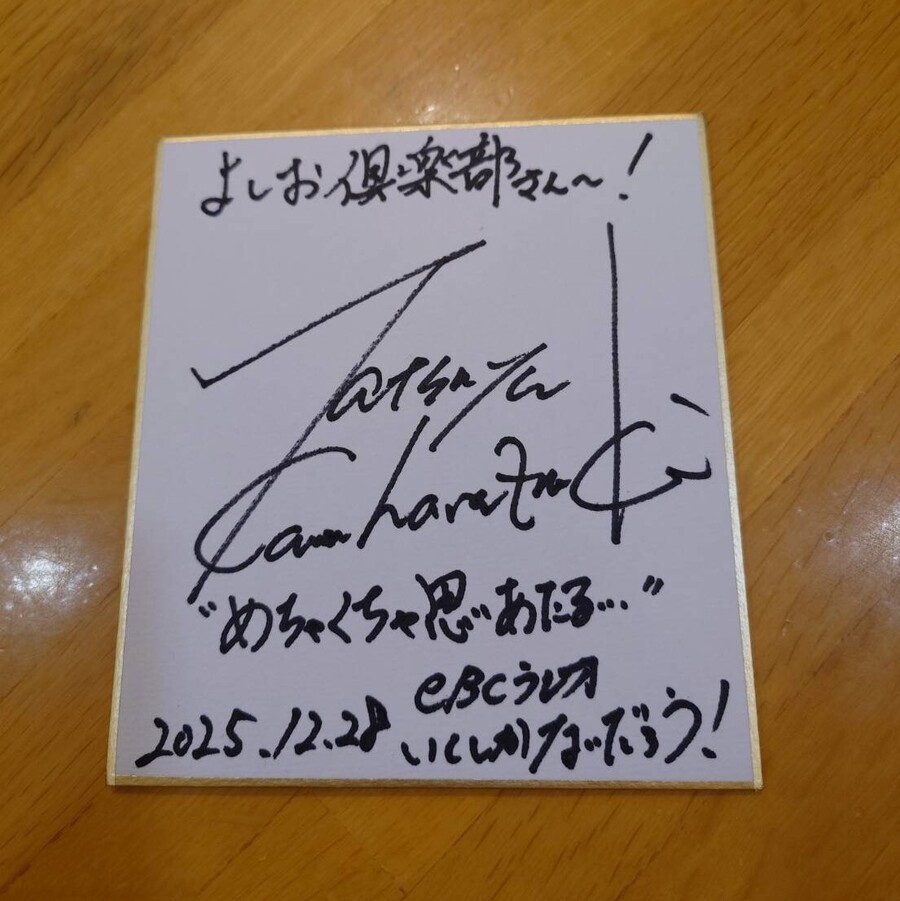 よしお倶楽部さん〜!
Tatsuya
Kawaharatsuki
"めちゃくちゃ思いあたる…"
CBCラジオ
2025.12.28 いくしかないだろう!